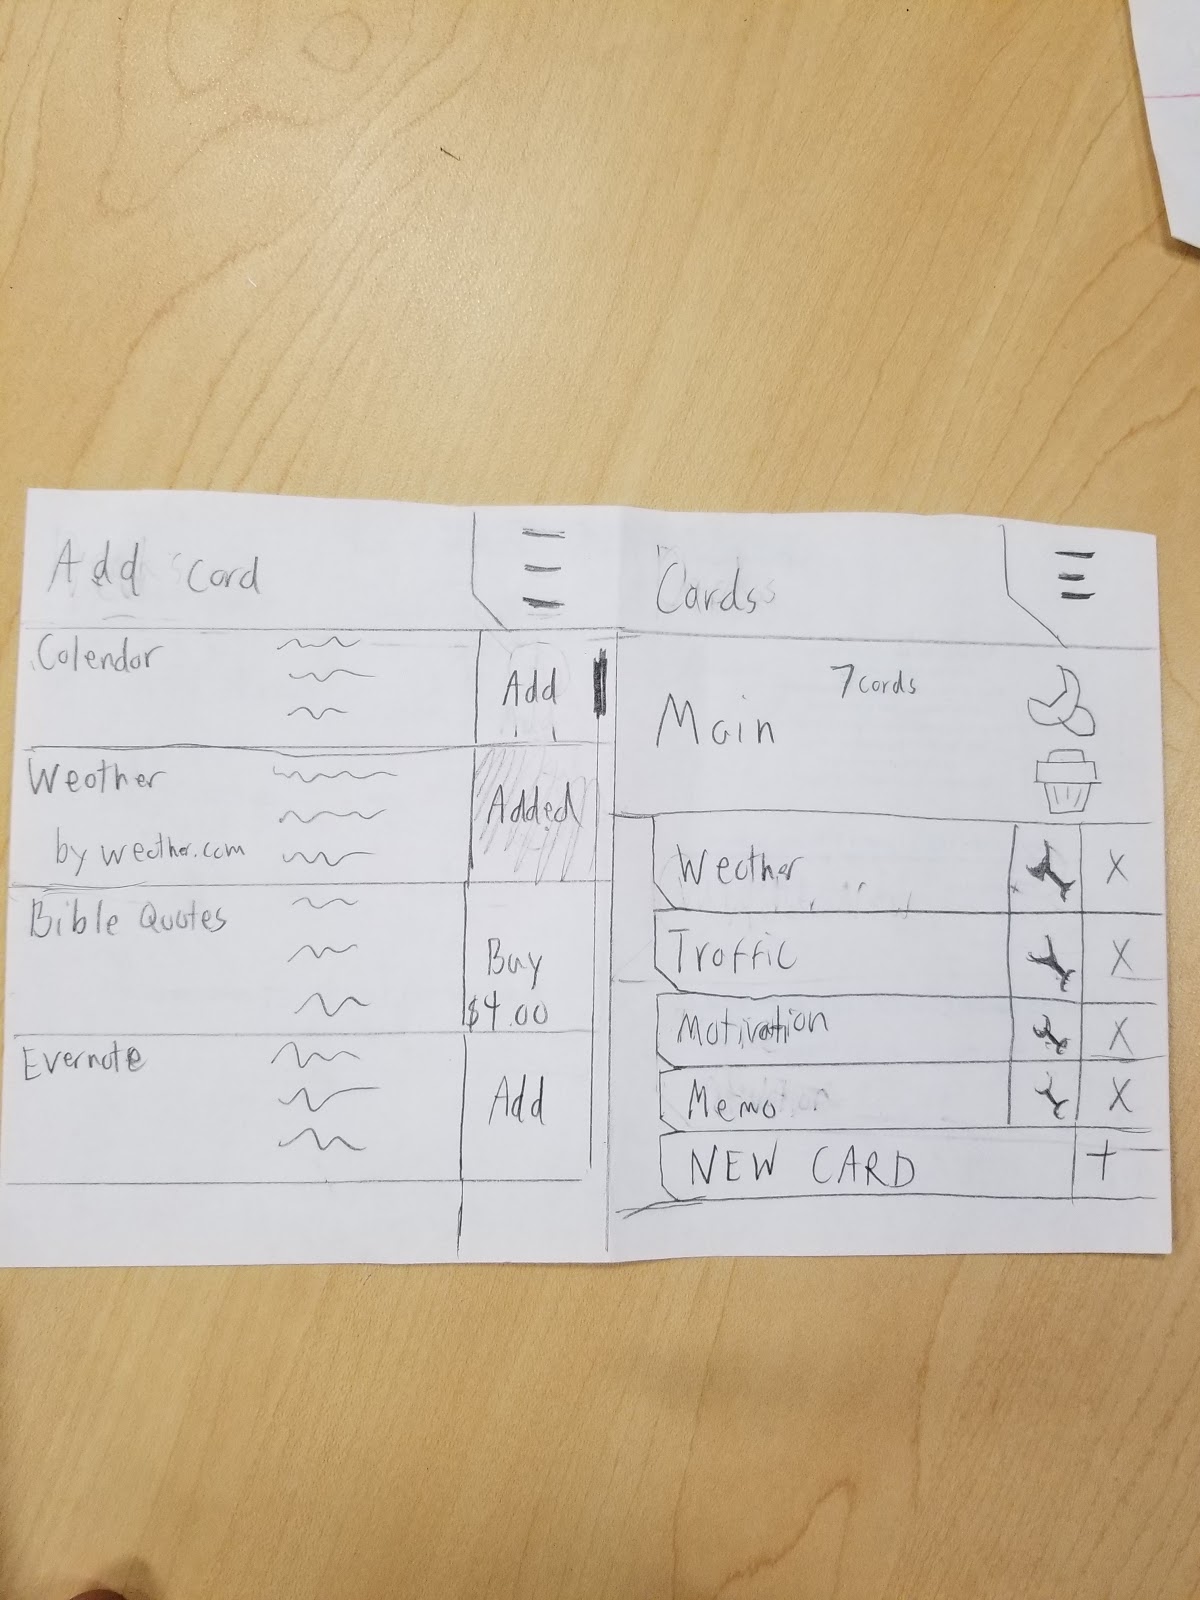 Add Card
Calendar
Add
Weather
by weather.com
Added
Bible Quotes
Buy
$4.00
Evernote
Add
Cards
7 cards
Main
Weather X
Traffic X
Motivation X
Memo X
NEW CARD +